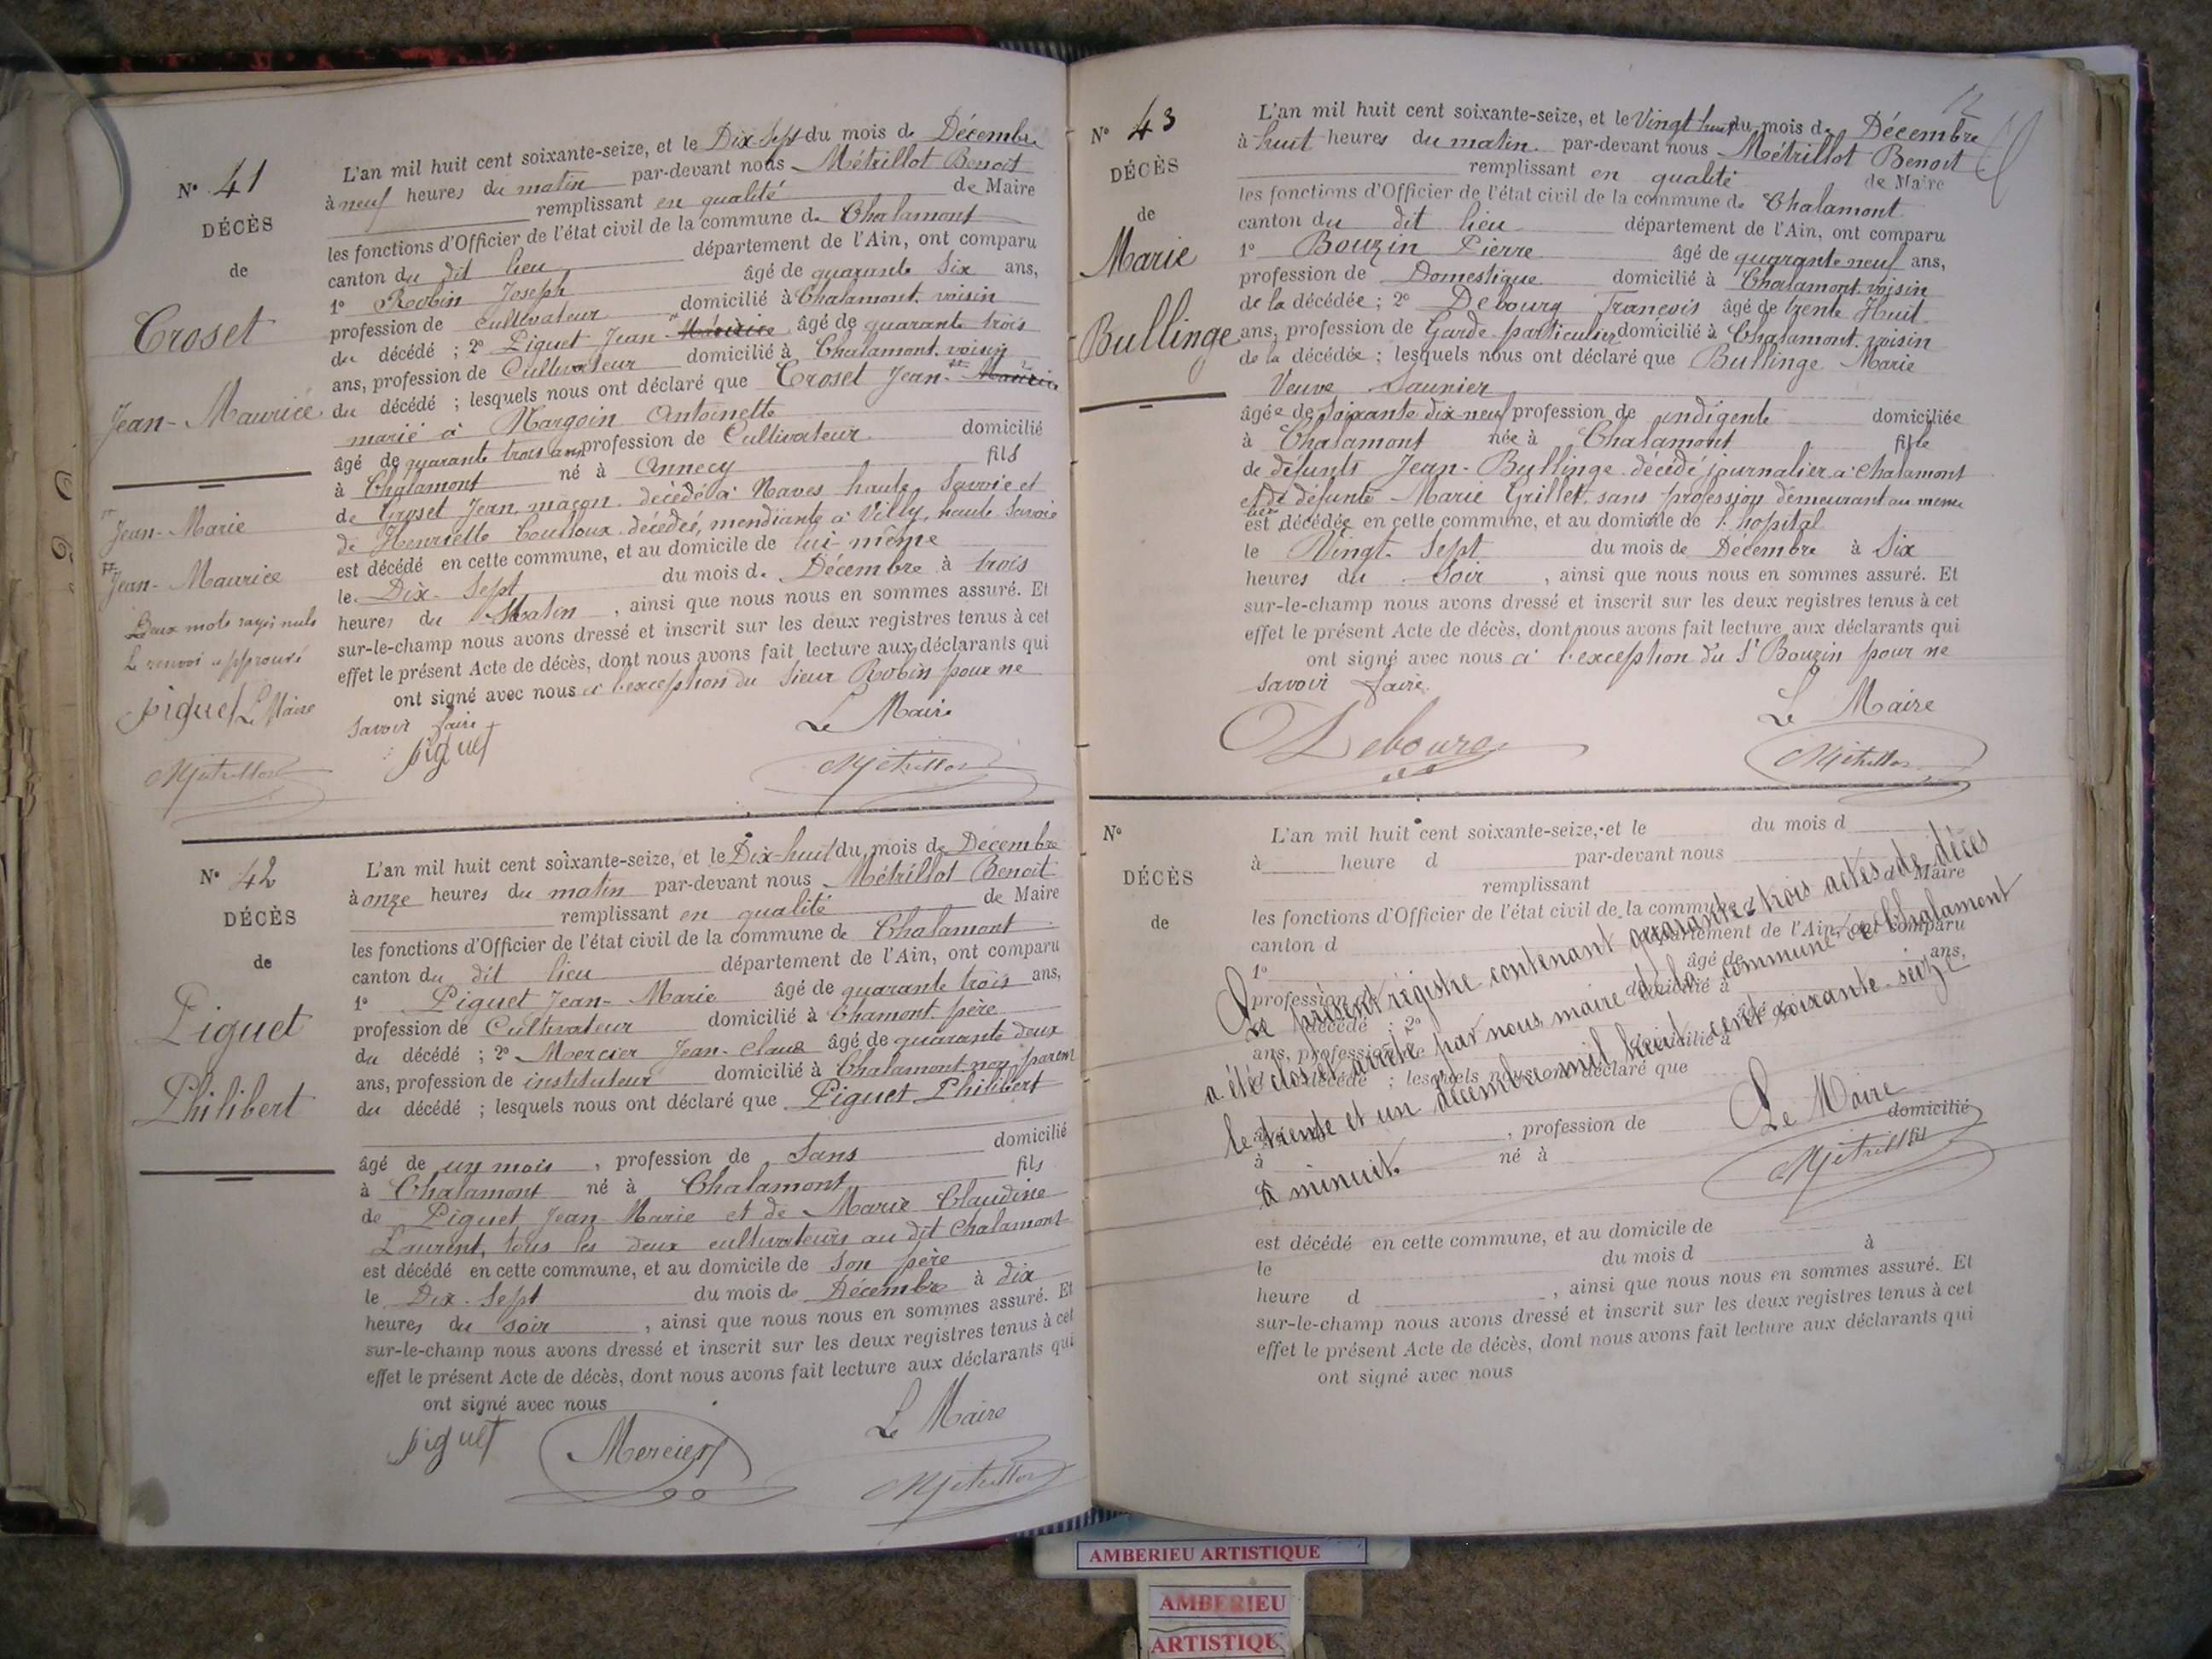 N° 41
DÉCÈS
de
Croset
Jean-Maurice
Jean-Marie
Jean-Maurice
Deux mots rayés nuls
Le renvoi approuvé
piguet Le Maire
Métrillot
L'an mil huit cent soixante-seize, et le Dix-Sept du mois de Décembre
à neuf heures du matin par-devant nous Métrillot Benoit
remplissant en qualité de Maire
les fonctions d'Officier de l'état civil de la commune de Chalamont
canton du dit lieu département de l'Ain, ont comparu
1° Robin Joseph âgé de quarante six ans,
profession de cultivateur domicilié à Chalamont. voisin
du décédé ; 2° Piguet Jean Maurice âgé de quarante trois
ans, profession de Cultivateur domicilié à Chalamont. voisin
du décédé ; lesquels nous ont déclaré que Croset Jean- Maurice
marié à Margoin Antoinette
âgé de quarante trois ans, profession de Cultivateur domicilié
à Chalamont né à Annecy fils
de Croset Jean, maçon. décédé à Naves haute Savoie et
de Henriette Coulloux décédée, mendiante à Villy, haute Savoie
est décédé en cette commune, et au domicile de lui-même
le Dix-Sept du mois de Décembre à trois
heures du Matin , ainsi que nous nous en sommes assuré. Et
sur-le-champ nous avons dressé et inscrit sur les deux registres tenus à cet
effet le présent Acte de décès, dont nous avons fait lecture aux déclarants qui
ont signé avec nous à l'exception du Sieur Robin pour ne
savoir faire
piguet
Le Maire
Métrillot
N° 42
DÉCÈS
de
Piguet
Philibert
L'an mil huit cent soixante-seize, et le Dix-huit du mois de Décembre
à onze heures du matin par-devant nous Métrillot Benoit
remplissant en qualité de Maire
les fonctions d'Officier de l'état civil de la commune de Chalamont
canton du dit lieu département de l'Ain, ont comparu
1° Piguet Jean-Marie âgé de quarante trois ans,
profession de Cultivateur domicilié à Chamont père
du décédé ; 2° Mercier Jean-Claue âgé de quarante deux
ans, profession de instituteur domicilié à Chalamont non parent
du décédé ; lesquels nous ont déclaré que Piguet Philibert
âgé de un mois , profession de Sans domicilié
à Chalamont né à Chalamont fils
de Piguet Jean Marie et de Marie Claudine
Laurent, tous les deux cultivateurs au dit Chalamont
est décédé en cette commune, et au domicile de son père
le Dix-Sept du mois de Décembre à dix
heures du soir , ainsi que nous nous en sommes assuré. Et
sur-le-champ nous avons dressé et inscrit sur les deux registres tenus à cet
effet le présent Acte de décès, dont nous avons fait lecture aux déclarants qui
ont signé avec nous
piguet Mercier
Le Maire
Métrillot
12
N° 43
DÉCÈS
de
Marie
Bullinge
L'an mil huit cent soixante-seize, et le Vingt huit du mois de Décembre
à huit heures du matin par-devant nous Métrillot Benoit
remplissant en qualité de Maire
les fonctions d'Officier de l'état civil de la commune de Chalamont
canton du dit lieu département de l'Ain, ont comparu
1° Bouzin Pierre âgé de quarante neuf ans,
profession de Domestique domicilié à Chalamont voisin
de la décédée ; 2° Debourg Francois âgé de trente Huit
ans, profession de Garde particulier domicilié à Chalamont. voisin
de la décédée ; lesquels nous ont déclaré que Bullinge Marie
Veuve Saunier
âgée de soixante dix-neuf profession de indigente domiciliée
à Chalamont née à Chalamont fille
de défunts Jean-Bullinge décédé journalier à Chalamont
et de défunte Marie Grillet. sans profession demeurant au meme
lieu
est décédée en cette commune, et au domicile de l'hopital
le Vingt-Sept du mois de Décembre à Six
heures du Soir , ainsi que nous nous en sommes assuré. Et
sur-le-champ nous avons dressé et inscrit sur les deux registres tenus à cet
effet le présent Acte de décès, dont nous avons fait lecture aux déclarants qui
ont signé avec nous à l'exception du Sr Bouzin pour ne
savoir faire.
Debourg
Le Maire
Métrillot
N°
DÉCÈS
de
L'an mil huit cent soixante-seize, et le du mois d
à heure d par-devant nous
remplissant d Maire
les fonctions d'Officier de l'état civil de la commune d
canton d département de l'Ain, ont comparu
1° âgé de ans,
profession de domicilié à
décédé ; 2° âgé de
ans, profession de domicilié à
décédé ; lesquels nous ont déclaré que
, profession de domicilié
à né à fil
Le présent régistre contenant quarante-trois actes de décès
a été clos et arrêté par nous maire de la commune de Chalamont
le trente et un décembre mil huit cent soixante-seize
à minuit.
Le Maire
Métrillot
est décédé en cette commune, et au domicile de
le du mois d à
heure d , ainsi que nous nous en sommes assuré. Et
sur-le-champ nous avons dressé et inscrit sur les deux registres tenus à cet
effet le présent Acte de décès, dont nous avons fait lecture aux déclarants qui
ont signé avec nous
AMBERIEU ARTISTIQUE
AMBERIEU
ARTISTIQUE